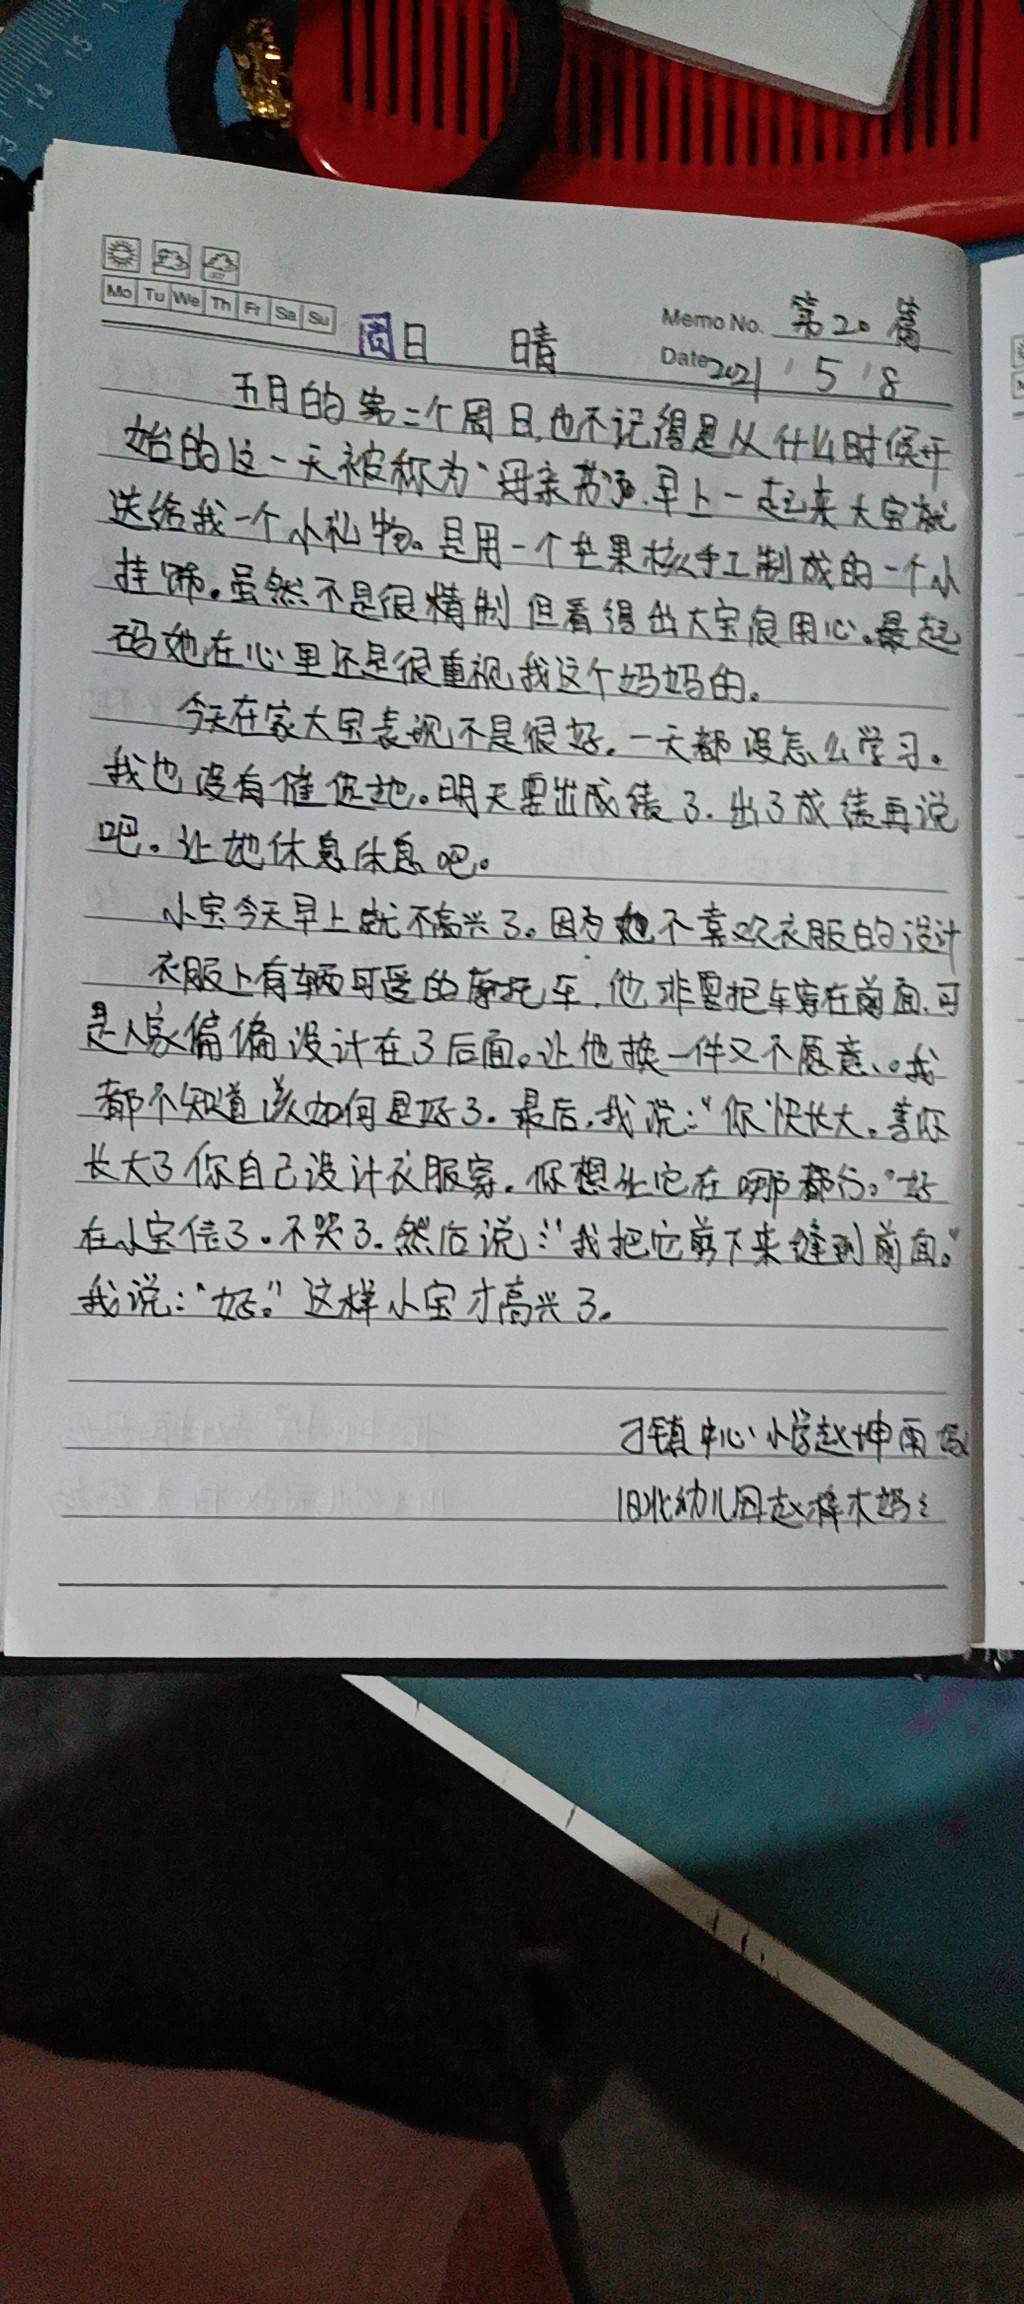 15
14
13
Mo Tu We Th Fr Sa Su
Memo No. 第20篇
周日 晴
Date 2021 / 5 / 8
五月的第二个周日,也不记得是从什么时候开
始的这一天被称为“母亲节”.早上一起来大宝就
送给我一个小礼物。是用一个芒果核手工制成的一个小
挂饰。虽然不是很精制但看得出大宝很用心。最起
码她在心里还是很重视我这个妈妈的。
今天在家大宝表现不是很好.一天都没怎么学习。
我也没有催促她。明天要出成绩了.出了成绩再说
吧。让她休息休息吧。
小宝今天早上就不高兴了。因为他不喜欢衣服的设计
衣服上有辆可爱的摩托车.他非要把车穿在前面.可
是人家偏偏设计在了后面。让他换一件又不愿意、。我
都不知道该如何是好了.最后.我说:“你快长大。等你
长大了你自己设计衣服穿.你想让它在哪都行。”好
在小宝信了。不哭了.然后说:“我把它剪下来缝到前面。”
我说:“好。”这样小宝才高兴了。
刁镇中心小学赵坤雨妈
旧北幼儿园赵梓木妈妈